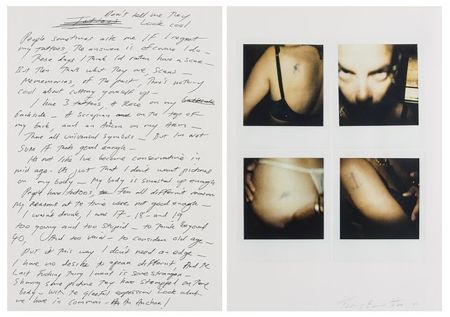 Don't tell me they
Look cool
People sometimes ask me if I regret
my tattoos, The answer is of course I do –
These days I think Id rather have a scar –
But then thats what they are, scars –
Memories of the past Theres nothing
cool about cutting yourself up –
I have 3 tattoos, a Rose on my
backside – A scorpion on the top of
my back, and an Anchor on my Arm –
Thats all universal symbols – But Im not
sure if thats good enough –
Its not like Ive become conservative in
mid age. Its just that I dont want pictures
on my body – My body is up enough
People have tattoos, for all different reason
my reasons at the time were not good enough –
I wasn't drunk, I was 17 - 18 - and 19
too young and too stupid – to think beyond
40, And too vain – to consider old age –
put it this way I dont need an edge –
I have no desire to appear different, And the
Last Fucking thing I want is some stranger –
Showing some picture they have stamped on their
body – with the gleeful expression Look what
we have in common – An Anchor!